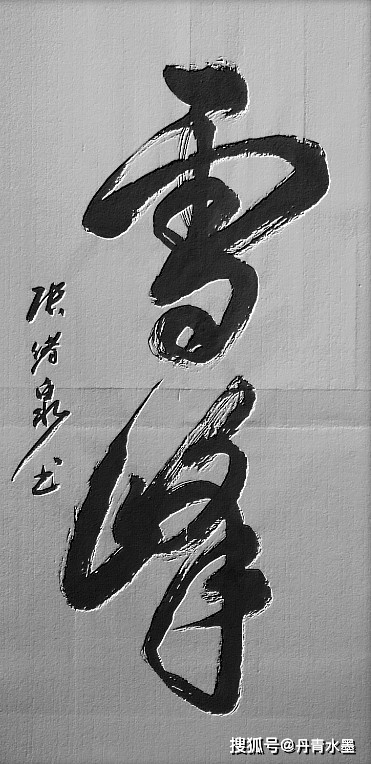 雪峰
张绪泉书
搜狐号@丹青水墨